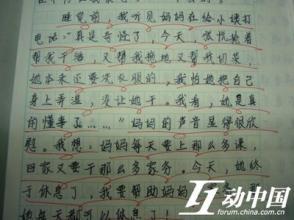 睡觉前，我听见妈妈在给小姨打
电话“真是奇怪了，今天，
帮我干活，又帮我拖地又帮我切菜，
她本来还要洗衣服的，我怕她把自己
身上弄湿，没让她干。我看，她是真
的懂事了……”妈妈的声音显得很欣
慰。我想：妈妈每天要上那么多课，
回家又要干那么多家务，今天，她终
于休息了，我要帮助妈妈
她每天都可以休息了！
互动中国
forum.china.com.cn